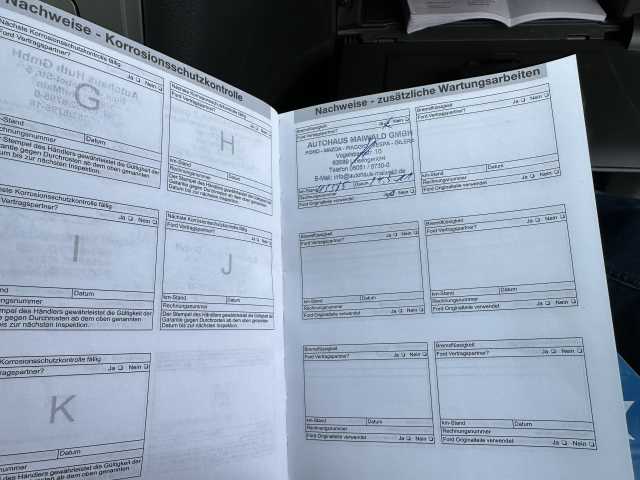 Nachweise - Korrosionsschutzkontrolle
Nächste Korrosionsschutzkontrolle fällig
Ford Vertragspartner? Ja Nein
G
km-Stand Datum
Rechnungsnummer
Der Stempel des Händlers gewährleistet die Gültigkeit der
Garantie gegen Durchrosten ab dem oben genannten
Datum bis zur nächsten Inspektion.
Nächste Korrosionsschutzkontrolle fällig
Ford Vertragspartner? Ja Nein
H
km-Stand Datum
Rechnungsnummer
Der Stempel des Händlers gewährleistet die Gültigkeit der
Garantie gegen Durchrosten ab dem oben genannten
Datum bis zur nächsten Inspektion.
Korrosionsschutzkontrolle fällig
Vertragspartner? Ja Nein
I
Stand Datum
Rechnungsnummer
Stempel des Händlers gewährleistet die Gültigkeit der
Garantie gegen Durchrosten ab dem oben genannten
bis zur nächsten Inspektion.
Nächste Korrosionsschutzkontrolle fällig
Ford Vertragspartner? Ja Nein
J
km-Stand Datum
Rechnungsnummer
Der Stempel des Händlers gewährleistet die Gültigkeit der
Garantie gegen Durchrosten ab dem oben genannten
Datum bis zur nächsten Inspektion.
Korrosionsschutzkontrolle fällig
Vertragspartner? Ja Nein
K
Datum
nummer
des Händlers gewährleistet die Gültigkeit der
gegen Durchrosten ab dem oben genannten
bis zur nächsten Inspektion.
Nachweise - zusätzliche Wartungsarbeiten
Bremsflüssigkeit
Ford Vertragspartner? Ja Nein
AUTOHAUS MAIWALD GMBH
FORD - MAZDA - PIAGGIO - VESPA - GILERA
Telefon
E-Mail: info@autohaus-maiwald.de
km-Stand Datum
Rechnungsnummer
Ford Originalteile verwendet Ja Nein
Bremsflüssigkeit
Ford Vertragspartner? Ja Nein
km-Stand Datum
Rechnungsnummer
Ford Originalteile verwendet Ja Nein
Bremsflüssigkeit
Ford Vertragspartner? Ja Nein
km-Stand Datum
Rechnungsnummer
Ford Originalteile verwendet Ja Nein
Bremsflüssigkeit
Ford Vertragspartner? Ja Nein
km-Stand Datum
Rechnungsnummer
Ford Originalteile verwendet Ja Nein
Bremsflüssigkeit
Ford Vertragspartner? Ja Nein
km-Stand Datum
Rechnungsnummer
Ford Originalteile verwendet Ja Nein
Bremsflüssigkeit
Ford Vertragspartner? Ja Nein
km-Stand Datum
Rechnungsnummer
Ford Originalteile verwendet Ja Nein